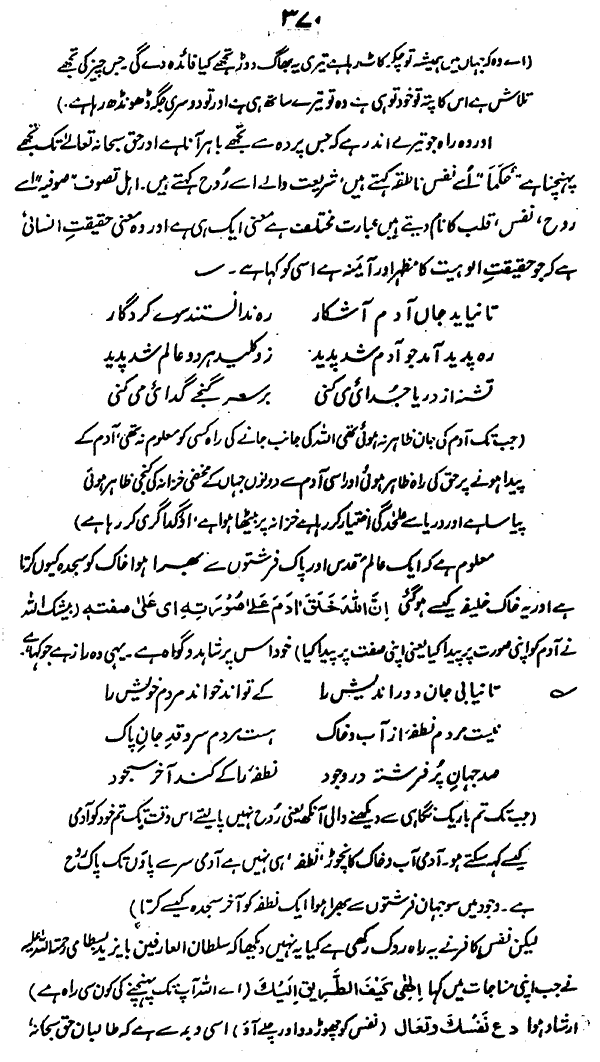 ۳۷۰
(اے وہ کہ جہاں میں ہمیشہ تو چکر کاٹ رہا ہے تیری یہ بھاگ دوڑ تجھے کیا فائدہ دے گی جس چیز کی تجھے
تلاش ہے اس کا پتہ تو خود تو ہی ہے وہ تو تیرے ساتھ ہی ہے اور تو دوسری جگہ ڈھونڈھ رہا ہے۔)
اور وہ راہ جو تیرے اندر ہے کہ جس پردہ سے تجھے باہر آنا ہے اور حق سبحانہ تعالےٰ تک تجھے
پہنچنا ہے "حُکَمَا" اُسے نفس ناطقہ کہتے ہیں، شریعت والے اسے رُوح کہتے ہیں۔ اہل تصوف "صوفیہ" اسے
روح، نفس، قلب کا نام دیتے ہیں عبارت مختلف ہے معنی ایک ہی ہے اور وہ معنی حقیقتِ انسانی
ہے کہ جو حقیقتِ الوہیت کا مظہر اور آئینہ ہے اسی کو کہا ہے۔ ؎
تا نیاید جاں آدم آشکار رہ ندانستند سوے کردگار
رہ پدید آمد چو آدم شد پدید زو کلید ہر دو عالم شد پدید
تشنہ از دریا جُدائی می کنی بر سر گنجے گدائی می کنی
(جب تک آدم کی جان ظاہر نہ ہوئی تھی اللہ کی جانب جانے کی راہ کسی کو معلوم نہ تھی، آدم کے
پیدا ہونے پر حق کی راہ ظاہر ہوئی اور اسی آدم سے دونوں جہاں کے مخفی خزانہ کی کنجی ظاہر ہوئی
پیاسا ہے اور دریا سے علٰحدگی اختیار کر رہا ہے خزانہ پر بیٹھا ہوا ہے، اور گداگری کر رہا ہے)
معلوم ہے کہ ایک عالم مقدس اور پاک فرشتوں سے بھرا ہوا خاک کو سجدہ کیوں کرتا
ہے اور یہ خاک خلیفہ کیسے ہو گئی اِنَّ اللّٰہَ خَلَقَ اٰدَمَ عَلٰے صُوْرَتِہٖ ای عَلیٰ صفتہٖ (بیشک اللہ
نے آدم کو اپنی صورت پر پیدا کیا یعنی اپنی صفت پر پیدا کیا) خود اس پر شاہد و گواہ ہے۔ یہی وہ راز ہے جو کہا ہے۔
؎ تا نیابی جان دور اندیش را کے تواند خواند مردم خویش را
نیست مردم نطفہ از آب و خاک ہست مردم سر و قد جانِ پاک
صد جہانِ پُر فرشتہ در وجود نطفہ را کے کند آخر سجود
(جب تک تم باریک نگاہی سے دیکھنے والی آنکھ یعنی رُوح نہیں پا لیتے اس وقت تک تم خود کو آدمی
کیسے کہہ سکتے ہو۔ آدمی آب و خاک کا نچوڑ "نطفہ" ہی نہیں ہے آدمی سر سے پاؤں تک پاک رُوح
ہے۔ وجود میں سو جہان فرشتوں سے بھرا ہوا ایک نطفہ کو آخر سجدہ کیسے کرتا)
لیکن نفس کافر نے یہ راہ روک رکھی ہے کیا یہ نہیں دیکھا کہ سلطان العارفین بایزید بسطامی رحمۃ اللہ علیہ
نے جب اپنی مناجات میں کہا اِلٰھِی کَیْفَ الطَّرِیْقُ اِلَیْكَ (اے اللہ آپ تک پہنچنے کی کون سی راہ ہے)
ارشاد ہوا دَعْ نَفْسَكَ وَتَعَال (نفس کو چھوڑ دو اور چلے آؤ) اسی وجہ سے ہے کہ طالبان حق سبحانہ